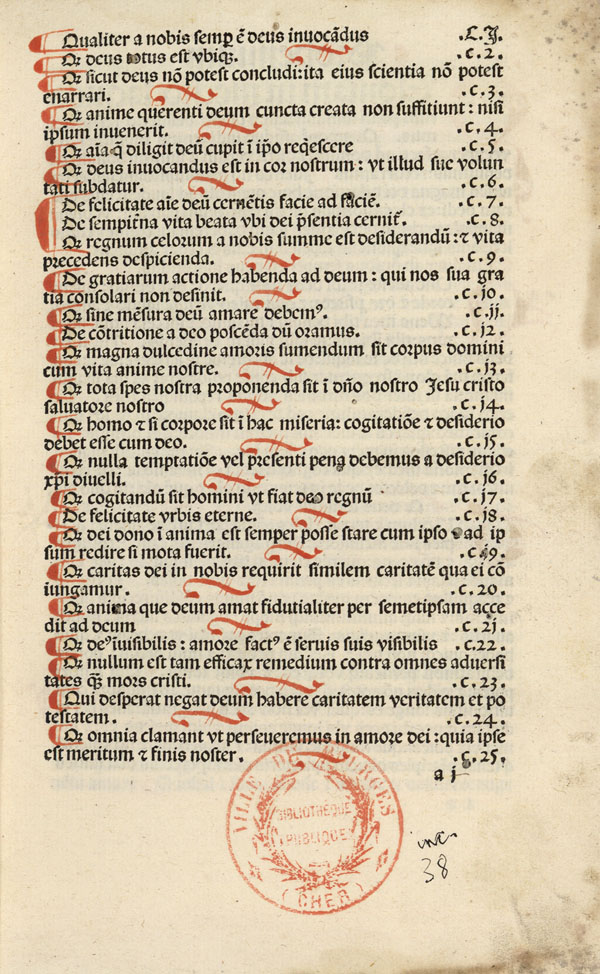 Qualiter a nobis semꝑ ē deus inuocādus .C.J.
Qꝫ deus totus est vbiqꝫ. .c.2.
Qꝫ sicut deus nō potest concludi: ita eius scientia nō potest
enarrari. .c.3.
Qꝫ anime querenti deum cuncta creata non suffitiunt: nisi
ipsum inuenerit. .c.4.
Qꝫ aīa q̄ diligit deū cupit ī ip̄o req̄escere .c.5.
Qꝫ deus inuocandus est in cor nostrum: vt illud sue volun
tati subdatur. .c.6.
De felicitate aīe deū cernētis facie ad faciē. .c.7.
De sempitna vita beata vbi dei p̄sentia cernit. .c.8.
Qꝫ regnum celorum a nobis summe est desiderandū: ⁊ vita
precedens despicienda. .c.9.
De gratiarum actione habenda ad deum: qui nos sua gra
tia consolari non desinit. .c.10.
Qꝫ sine mēsura deū amare debemꝰ. .c.11.
De cōtritione a deo poscēda dū oramus. .c.12.
Qꝫ magna dulcedine amoris sumendum sit corpus domini
cum vita anime nostre. .c.13.
Qꝫ tota spes nostra proponenda sit ī dn̄o nostro Jesu cristo
saluatore nostro .c.14.
Qꝫ homo ⁊ si corpore sit ī hac miseria: cogitatiōe ⁊ desiderio
debet esse cum deo. .c.15.
Qꝫ nulla temptatiōe vel presenti pena debemus a desiderio
xp̄i diuelli. .c.16.
Qꝫ cogitandū sit homini vt fiat deo regnū .c.17.
De felicitate vrbis eterne. .c.18.
Qꝫ dei dono ī anima est semper posse stare cum ipso ad ip
sum redire si mota fuerit. .c.19.
Qꝫ caritas dei in nobis requirit similem caritatē qua ei cō
iungamur. .c.20.
Qꝫ anima que deum amat fidutialiter per semetipsam acce
dit ad deum .c.21.
Qꝫ deꝰ īuisibilis: amore factꝰ ē seruis suis visibilis .c.22.
Qꝫ nullum est tam efficax remedium contra omnes aduersi
tates q̄ꝫ mors cristi. .c.23.
Qui desperat negat deum habere caritatem veritatem et po
testatem. .c.24.
Qꝫ omnia clamant vt perseueremus in amore dei: quia ipse
est meritum ⁊ finis noster. .c.25.
a j
VILLE DE BOURGES
BIBLIOTHÈQUE
PUBLIQUE
(CHER)
inc.
38